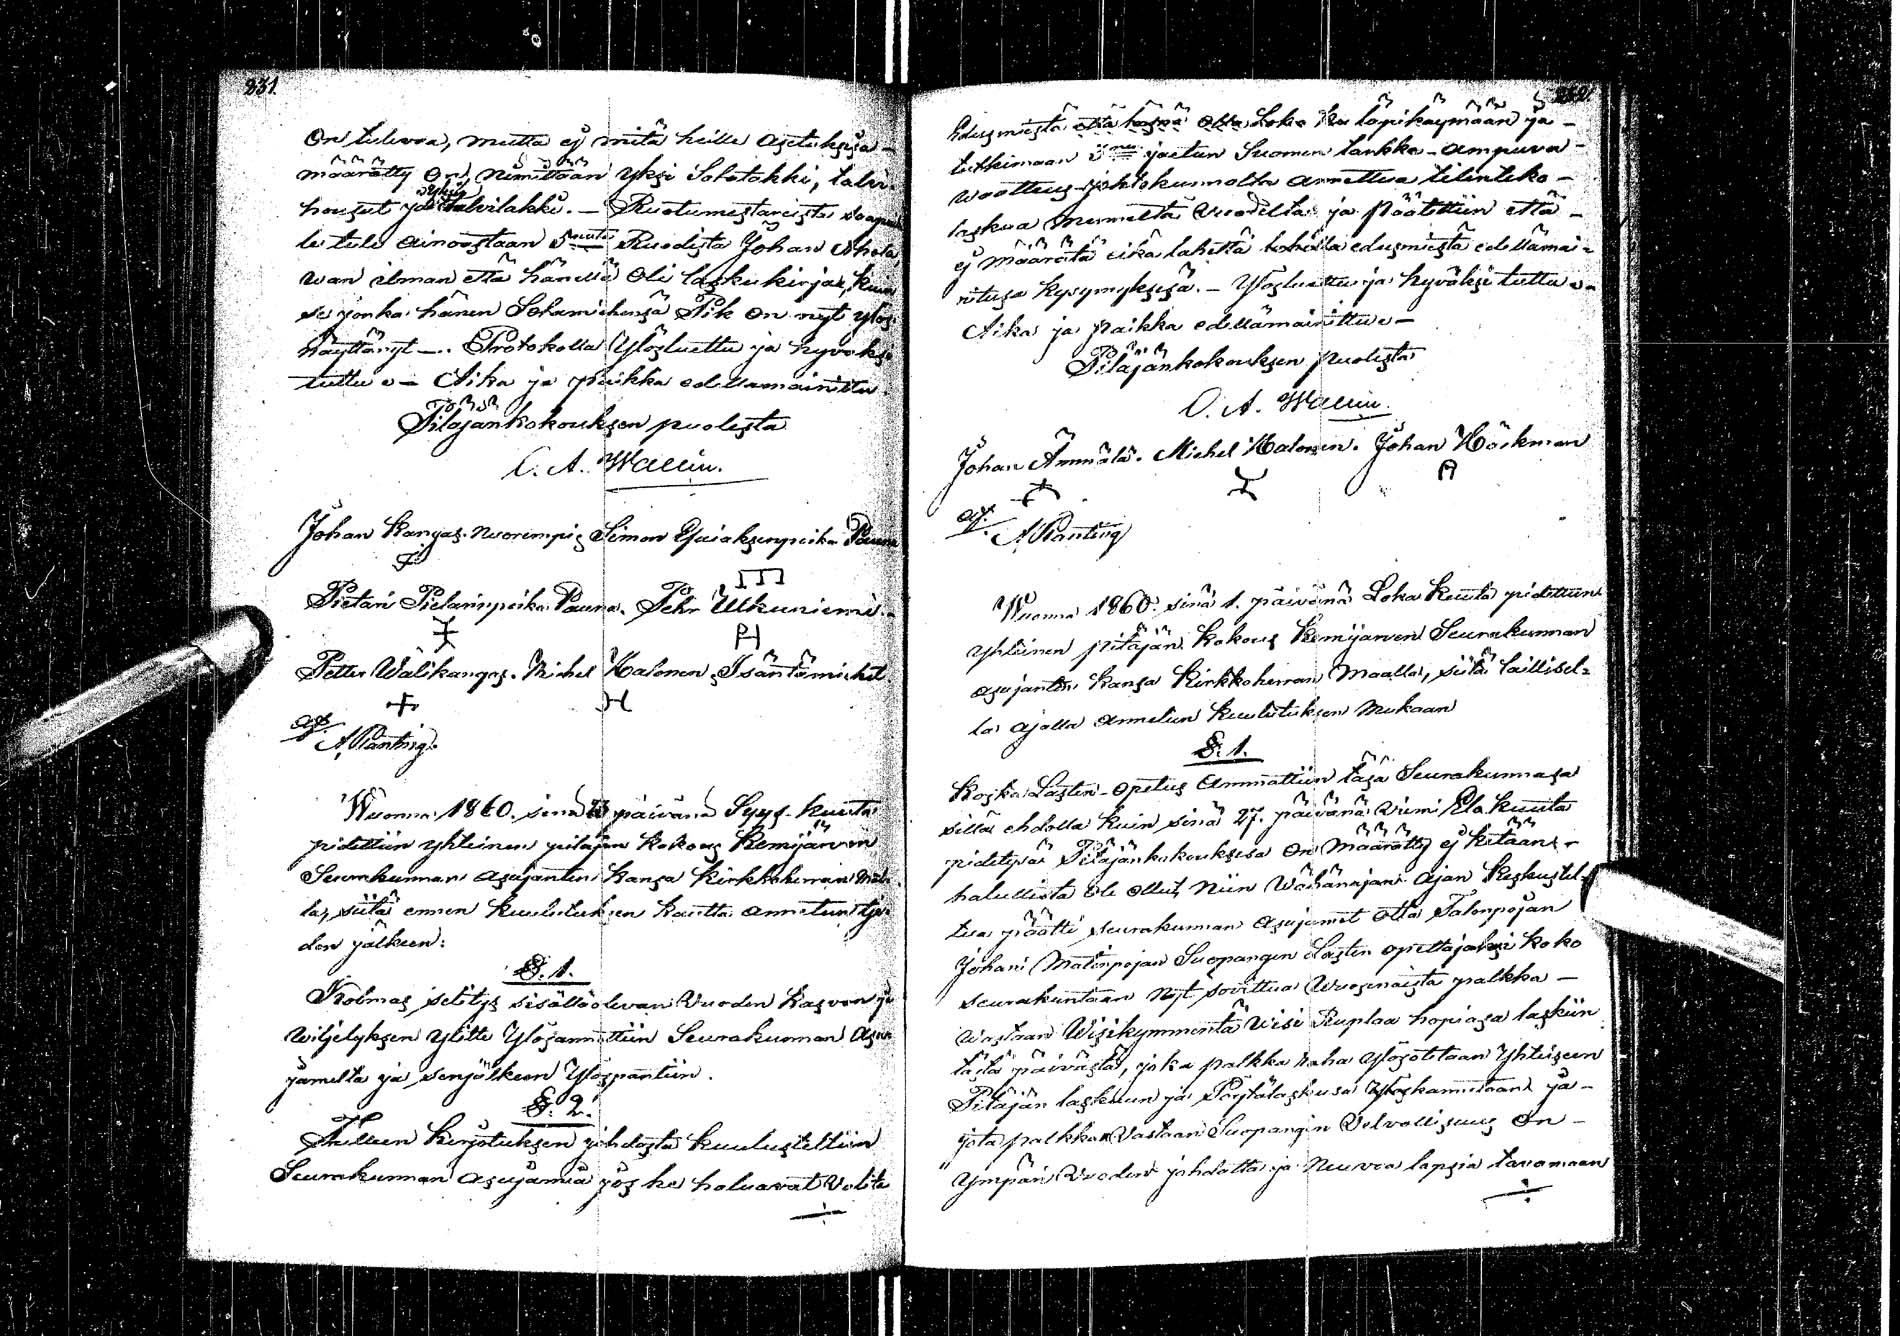 231.
On tulewa, mutta ej mitä heille asetuksesa-
määrätty On, nimittäin yksi Solstakki, talvi
housut ja yksi talvilakki. – Ruotumestareista
le tule ainoastaan 5 Ruodista Johan
wan ilman että hänellä Oli laskukirjaa, kuin
se jonka hänen Sotamiehensä Pik on nyt ylös
näyttänyt –. Protokolla Ylösluettu ja hyväksi
tuttu – Aika ja paikka edellämainittu
Pitäjänkokouksen puolesta
C. A. Wallin.
Johan Kangas nuorempi Simon Esaiaksenpoika Pauna
Pietari Pietarinpoika Pauna. Pehr Ulkuniemi.
Petter Wälikangas. Michel Halonen, Isäntämiehet
A Planting.
Wuonna 1860. sinä päivänä Syys-kuuta
pidettiin yhteinen pitäjän kokous Kemijärven
Seurakunnan asujanten kansa Kirkkoherran Maal-
la, siitä ennen kuulutuksen kautta annetun tje-
don jälkeen:
§. 1.
Kolmas selitys sisälläolevan Vuoden kasvon ja
viljelyksen ylitte Ylösannettiin Seurakunnan Asu-
jamelta ja senjälkeen Ylöspantiin.
§. 2.
Kirjotuksen johdosta kuulusteltiin
Seurakunnan asujamia jos he haluavat Valita
232.
Edusmiestä että Loka ku läpikäymään ja-
tutkimaan jaetun Suomen tarkka-ampuva-
johtokunnalta annettua tilinteko-
laskua menneeltä Vuodelta ja päätettiin että-
ej määrätä eikä lähettä edusmiestä edellämai-
nitusa kysymyksesä. – Ylösluettu ja hyväksi tuttu
Aika ja paikka edellämainittu –
Pitäjänkokouksen puolesta
C. A. Wallin.
Johan Ämmälä. Michel Halonen. Johan Höckman
A Planting
Wuonna 1860. sinä 1. päivänä Loka kuuta pidettiin
yhteinen pitäjän kokous Kemijärven Seurakunnan
asujanten kansa Kirkkoherran Maalla, siitä laillisel-
la ajalla annetun kuulutuksen mukaan
§. 1.
Koska Lasten-opetus Ammattiin täsä Seurakunnasa
sillä ehdolla kuin sinä 27. päivänä Viimi Elo kuuta
pidetysä Pitäjänkokouksesa On Määrätty ej ketään-
halullista Ole Ollut, niin Wähänajan ajan keskustel-
tua päätti seurakunnan asujamet Otta Talonpojan
Johani Matinpojan Suopangin Lasten opettajaksi koko
seurakuntaan Nyt sovittua Wuosinaista palkka-
wastaan Wisikymmentä Wisi Ruplaa hopiasa laskiin
tästä päivästä, joka palkka raha Ylösotetaan Yhteiseen
Pitäjän laskuun ja Pöytälaskusa Ylöskannetaan ja-
jota palkka Vastaan Suopangin Velvollisuus On-
Ympäri Vuoden johdatta ja Neuvoa lapsia tavamaan